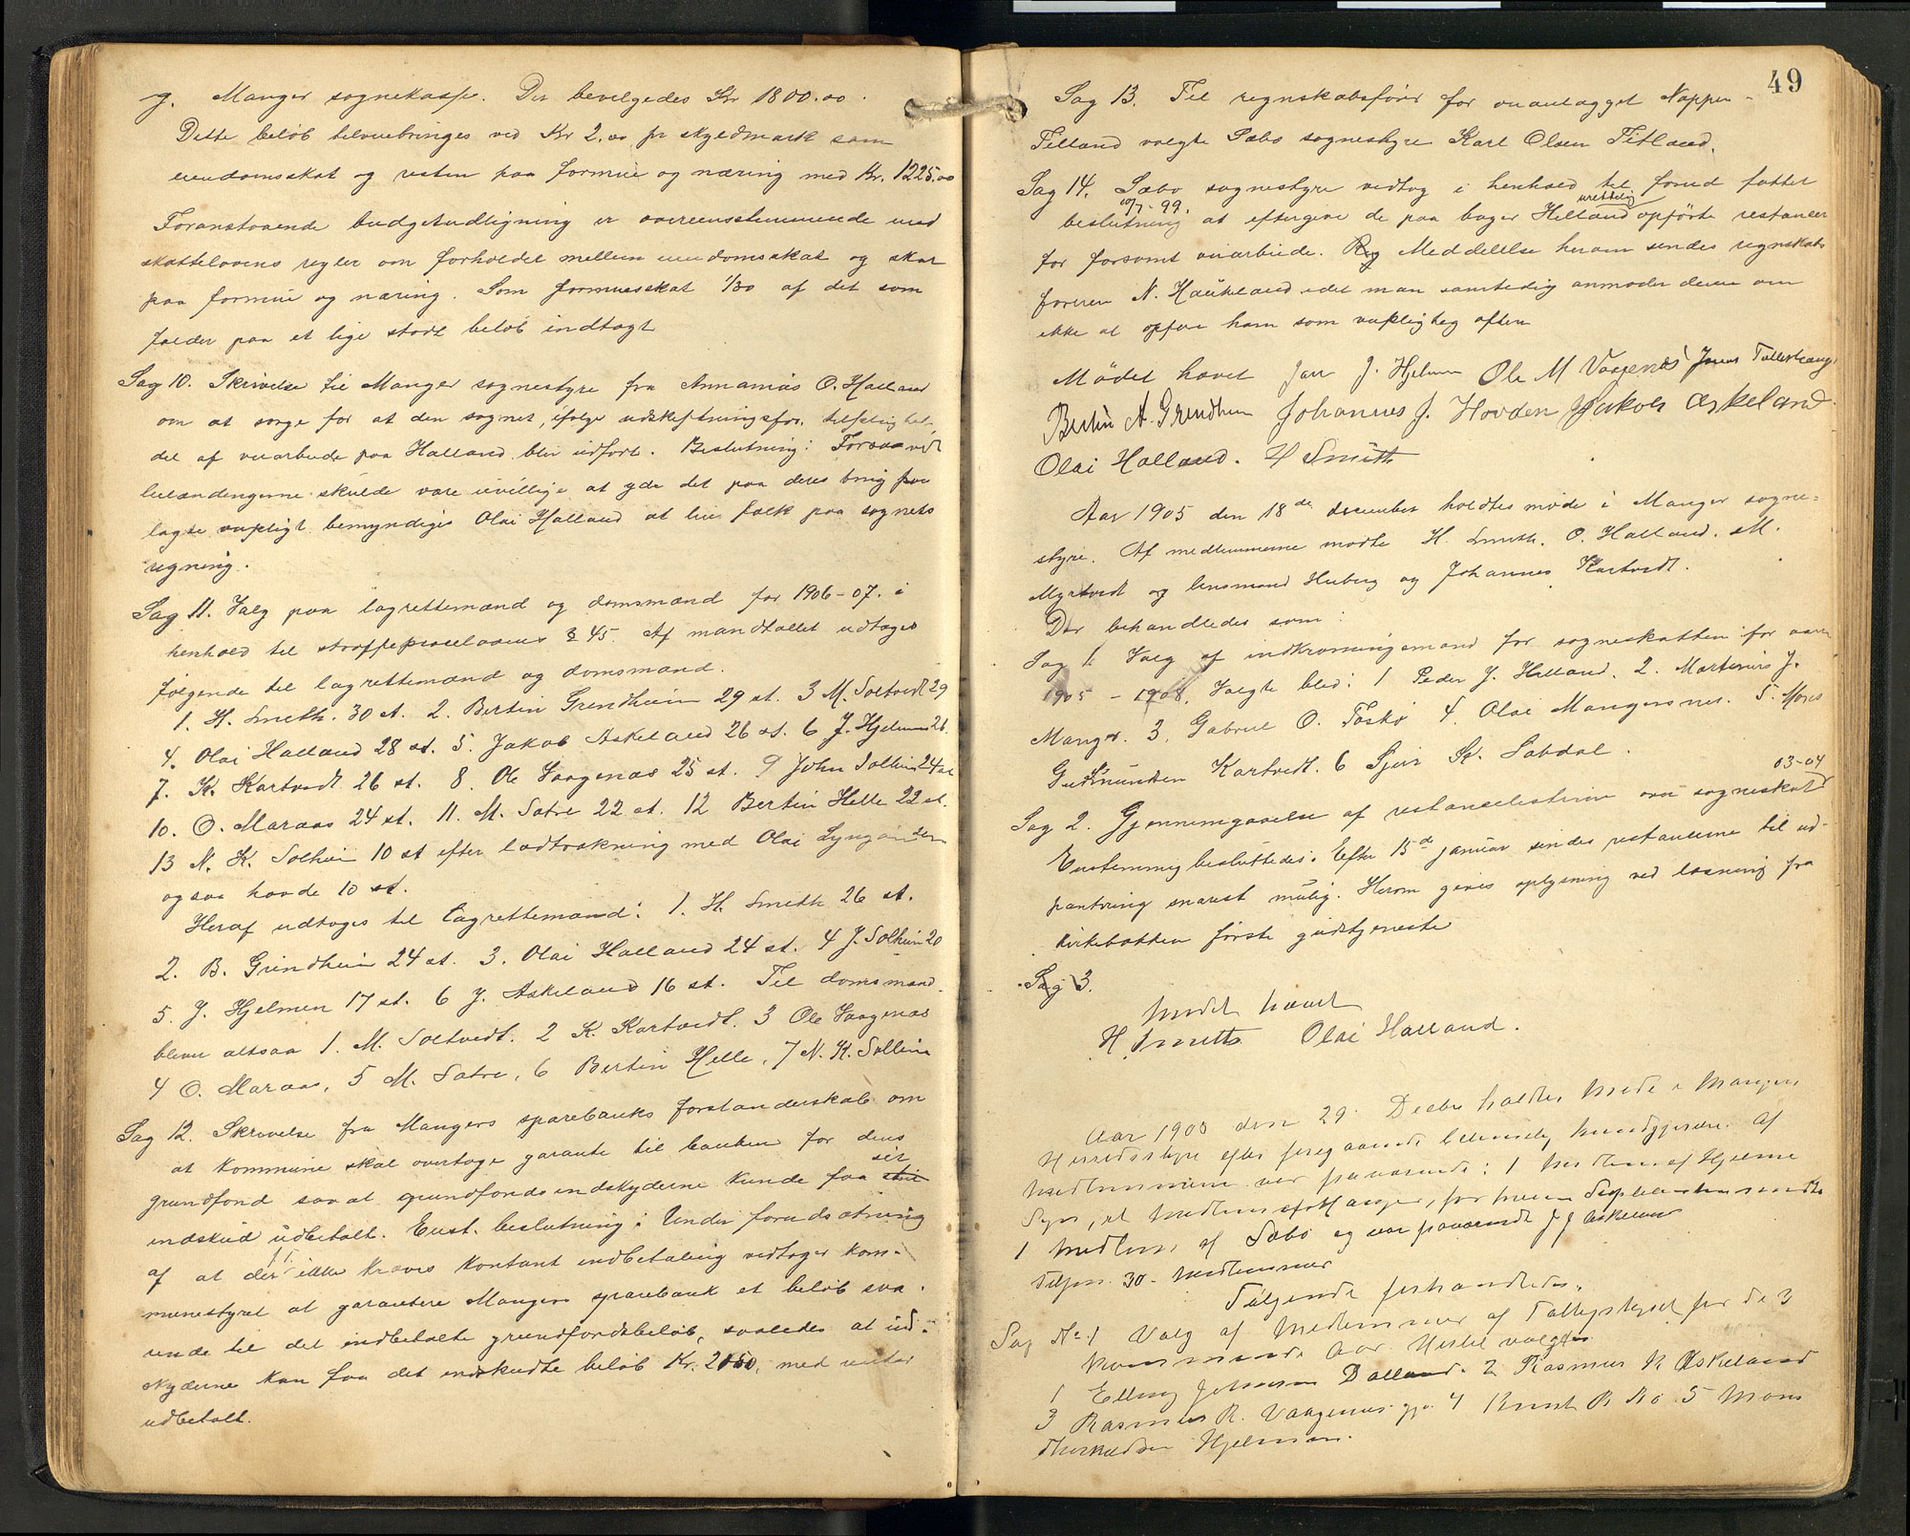 g. Manger sognekasse. Der bevelgedes Kr 1800.00.
Dette beløb tilveiebringes ved Kr 2.00 pr skyldmark som
eiendomsskat og resten paa formue og næring med Kr. 1225.00
Foranstaaende budgetudligning er overeensstemmende med
skattelovens regler om forholdet mellem eiendomsskat og skat
paa formue og næring. Som formuesskat 1/30 af det som
falder paa et lige stort beløb indtægt
Sag 10. Skrivelse til Manger sognestyre fra Annanias O. Halland
om at sørge for at den sognet, ifølge udskiftningsfor.
del af veiarbeide paa Halland blir udført. Beslutning: Forsaavidt
leilændingerne skulde være uvillige at yde det paa deres brug
lagte arbeide bemyndiges Olai Halland at leie folk paa sognets
regning.
Sag 11. Valg paa lagrettemænd og domsmænd for 1906-07. i
henhold til straffeproceslovens § 45. Af mandtallet udtoges
følgende til lagrettemænd og domsmænd.
1. H. Smith. 30 st. 2. Bertin Grindheim 29 st. 3 M. Soltvedt 29
4. Olai Halland 28 st. 5. Jakob Askeland 26 st. 6 J. Hjelmen 26.
7. K. Kartvedt 26 st. 8. Ole Vaagenæs 25 st. 9 John Solheim 24 st
10. O. Maraas 24 st. 11. M. Sætre 22 st. 12 Bertin Helle 22 st.
13 N. K. Solheim 10 st efter lodtrækning med Olai
ogsaa havde 10 st.
Heraf udtoges til Lagrettemænd: 1. H. Smith 26 st.
2. B. Grindheim 24 st. 3. Olai Halland 24 st. 4 J. Solheim 20
5. J. Hjelmen 17 st. 6 J. Askeland 16 st. Til domsmænd
blev altsaa 1. M. Soltvedt. 2 K. Kartvedt. 3 Ole Vaagenæs
4 O. Maraas, 5 M. Sætre, 6 Bertin Helle, 7 N. K. Solheim
Sag 12. Skrivelse fra Mangers sparebanks forstanderskab om
at kommune skal overtage garanti til banken for dens
grundfond saa at grundfondsindskyderne kunde faa sit
indskud udbetalt. Enst. beslutning: Under forudsætning
af at der ikke kræves kontant indbetaling vedtager kom-
munestyret at garantere Mangers sparebank et beløb sva-
rende til det indbetalte grundfondsbeløb, saaledes at ind-
skyderne kan faa det indskudte beløb Kr. 2050, med renter
udbetalt.
49
Sag 13. Til regnskabsfører for veianlægget Nappen-
Titland valgte Sæbø sognestyre Karl Olsen Titland.
Sag 14. Sæbø sognestyre vedtog i henhold til forud fattet
10/7-99. urettelig
beslutning at eftergive de paa buger Helland opførte restancer
for forsømt veiarbeide. Meddelelse herom sendes regnskabs
føreren N. Haukeland idet man samtidig anmoder denne om
ikke at opføre ham som veipligtig oftere
Mødet hævet Jan J. Hjelmen Ole M Vaagenæs
Bertin A. Grindheim Johannes J. Hovden Jakob Askeland.
Olai Halland. H Smith
Aar 1905 den 18de december holdtes møde i Manger sogne-
styre. Af medlemmerne mødte H. Smith. O. Halland. M.
Myrtvedt og lensmand Huberg og Johannes Kartvedt.
Der behandledes som:
Sag 1. Valg af indkrævningsmænd for sogneskatten for aaren
1905-1908. Valgte blev: 1 Peder J. Halland. 2. Martinius J.
Manger. 3. Gabriel O. Toskø 4. Olai Mangersnes. 5. Mons
Gudmundsen Kartvedt. 6 Sjur K. Sabdal.
Sag 2. Gjennemgaaelse af restancelisterne over sogneskat 03-04
Enstemmig besluttedes: Efter 15de januar sendes restancerne til ud-
pantning snarest mulig. Herom gives oplysning ved læsning fra
kirkebakken første gudstjeneste
Sag 3.
Mødet hævet
H. Smith Olai Halland.
Aar 1905 den 29. Decbr holdtes Møde i Mangers
Herredsstyre efter foregaaende lovmæssig kundgjørelse. Af
Medlemmerne var fraværende: 1 Medlem af Hjelme
Sogn, et Medlem
1 Medlem af Sæbø og var fraværende J J Askeland
Tilsam. 30 Medlemmer
Følgende forhandledes.
Sag No 1 Valg af Medlemmer af Tilsynsstyret for de 3
kommende Aar. Hertil valgtes
1 Elling Johnsen Dalland. 2 Rasmus R Askeland
3 Rasmus R. Vaagenes 4 Knut R Bø 5 Mons
Hjelmen.